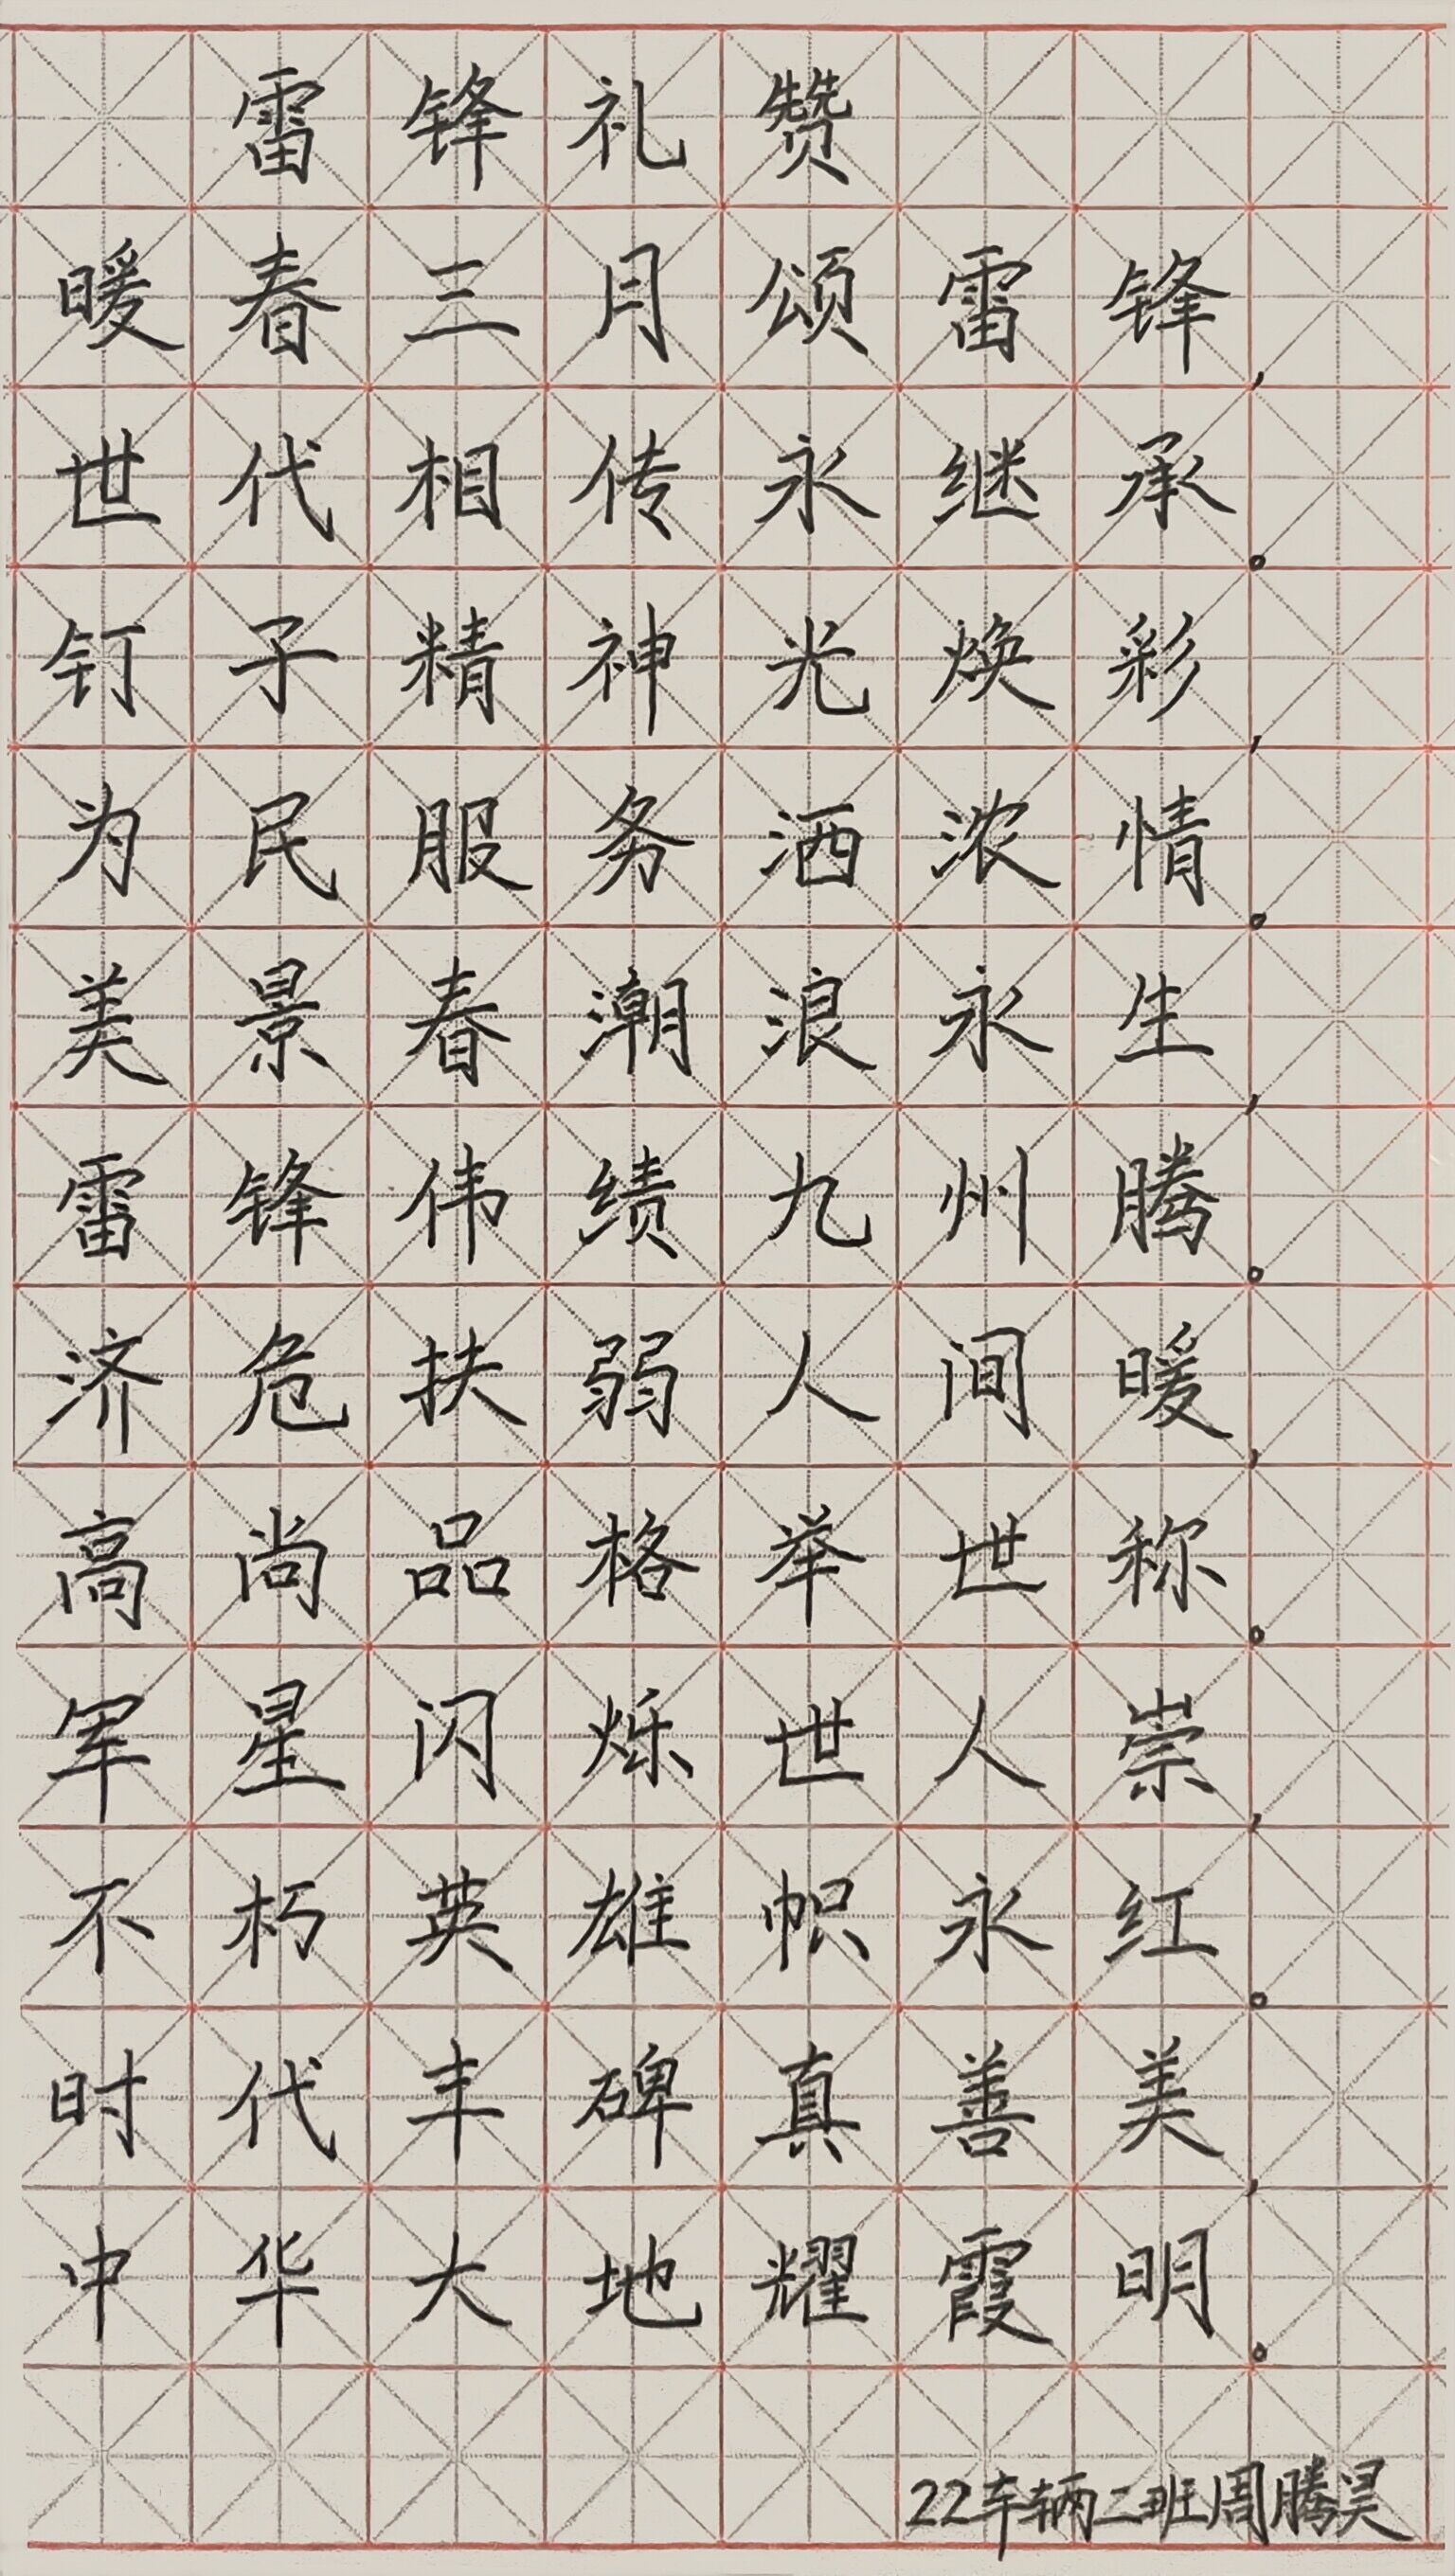 雷锋礼赞
暖春三月颂雷锋，
世代相传永继承。
钉子精神光焕彩，
为民服务洒浓情。
美景春潮浪永生，
雷锋伟绩九州腾。
济危扶弱人间暖，
高尚品格举世称。
军星闪烁世人崇，
不朽英雄帜永红。
时代丰碑真善美，
中华大地耀霞明。
22车辆二班周腾昊